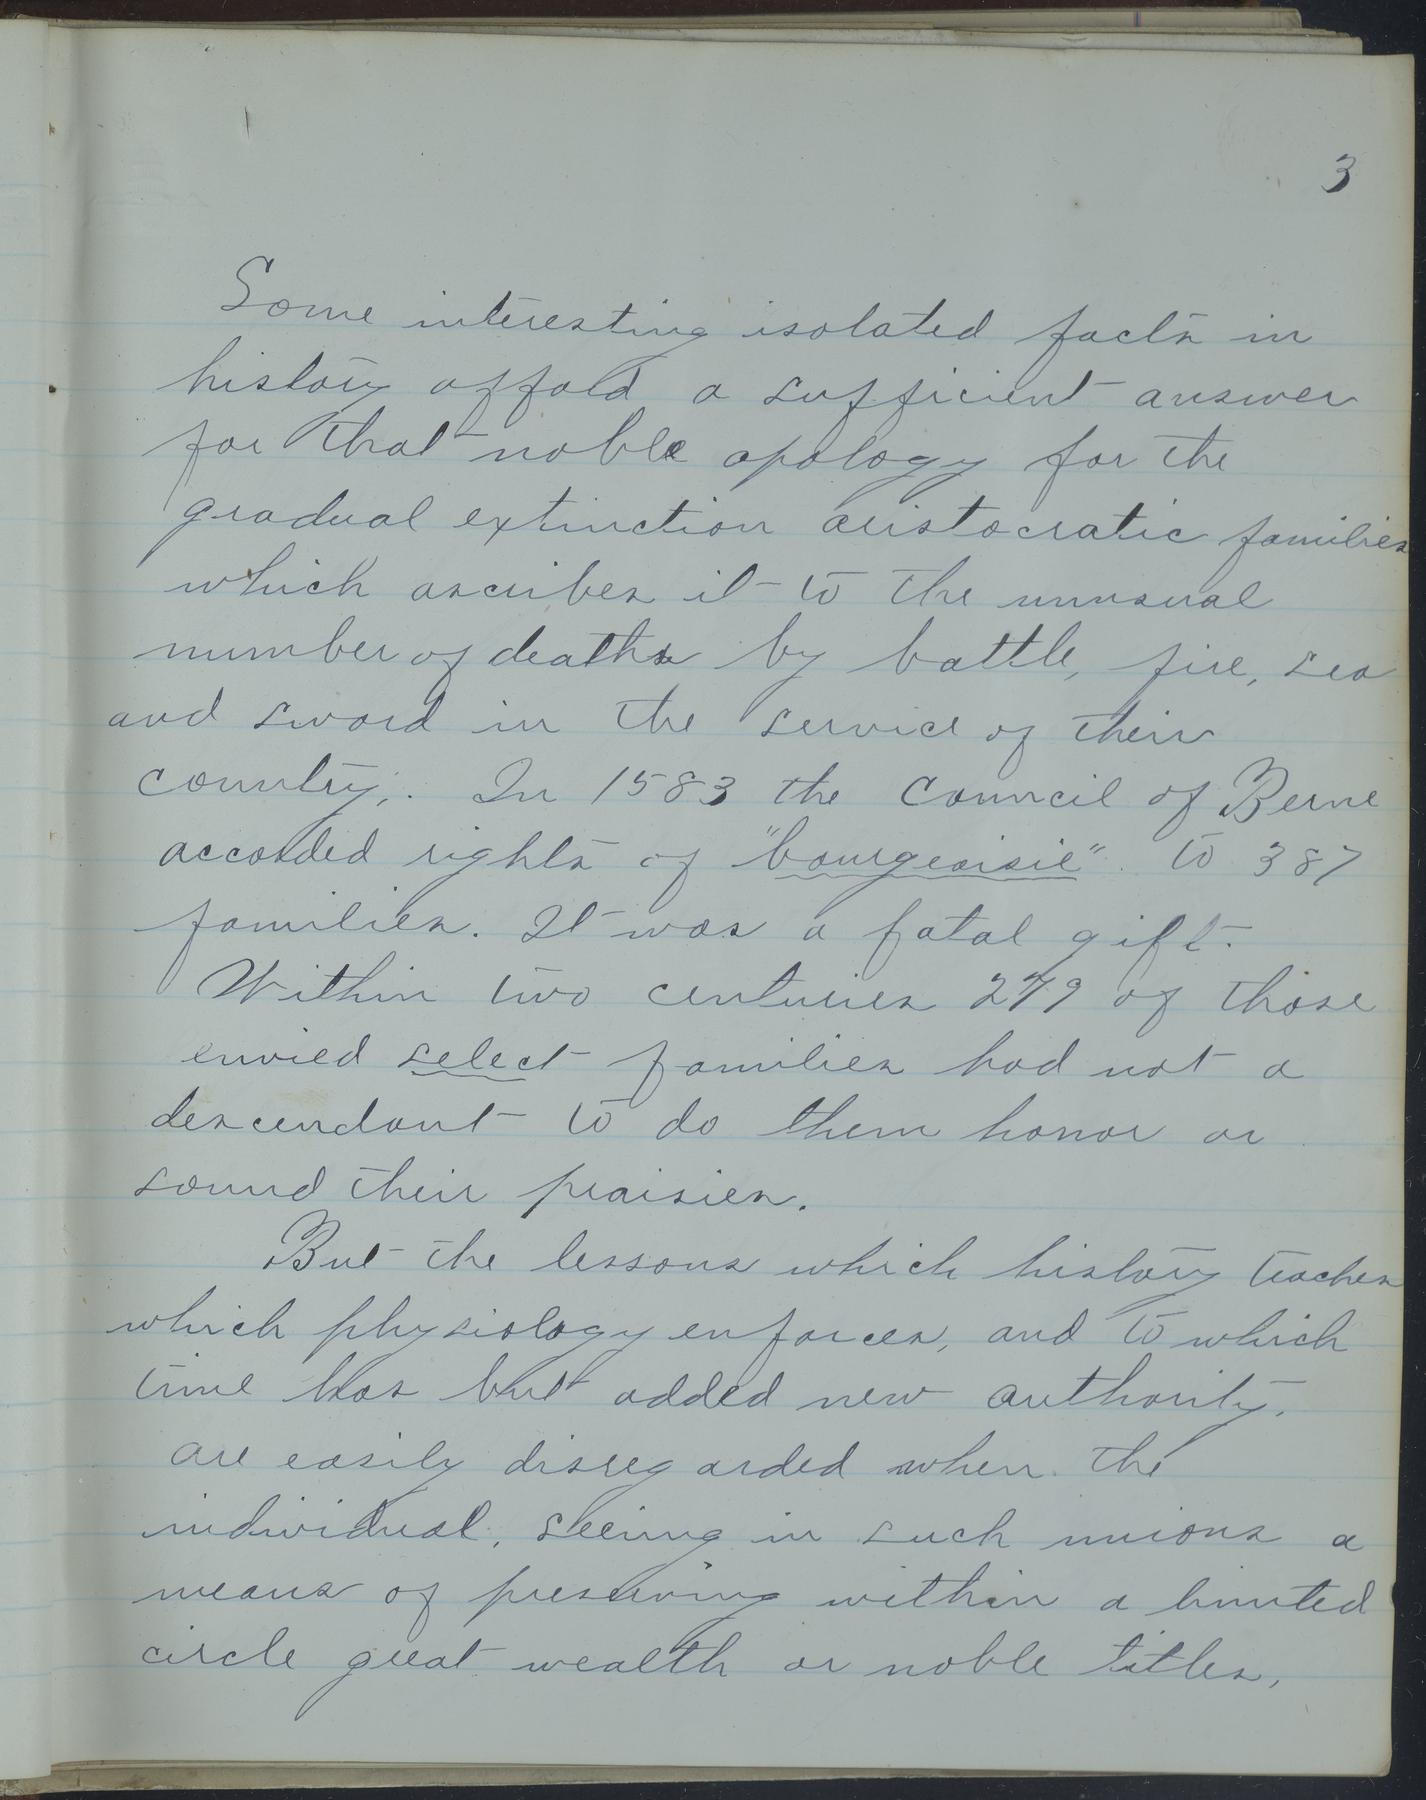 3
Some interesting isolated facts in
history affold a sufficient answer
for that noble apology for the
gradual extinction aristocratic families
which ascribes it to the unusual
number of deaths by battle, fire, sea
and sword in the service of their
country;. In 1583 the Council of Berne
accorded rights of "bourgeoisie". to 387
families. It was a fatal gift.
Within two centuries 279 of those
envied select families had not a
descendant to do them honor or
sound their praisies.
But the lessons which history teaches
which physiology enforces, and to which
time has but added new authority,
are easily disregarded when the
individual, seeing in such unions a
means of preserving within a limited
circle great wealth or noble titles,